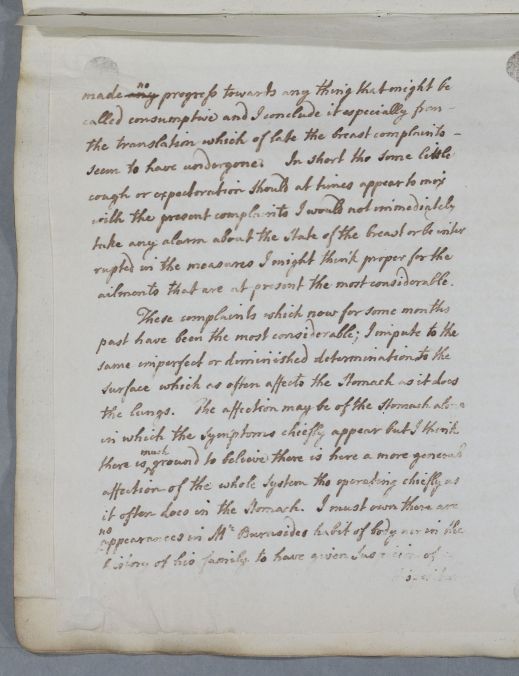 made any no progress towards any thing that might be
called consumptive and I conclude it especially from
the translation which of late the breast complaints
seem to have undergone. In short tho some little
cough or expectoration should at times appear to mix
with the present complaints I would not immediately
take any alarm about the state of the breast or be inter
rupted in the measures I might think proper for the
ailments that are at present the most considerable.
These complaints which now for some months
past have been the most considerable; I impute to the
same imperfect or diminished determination to the
surface which as often affects the Stomach as it does
the lungs. The affection may be of the Stomach alone
in which the symptoms chiefly appear but I think
there is much ground to believe there is here a more general
affection of the whole System tho operating chiefly as
it often does in the Stomach. I must own there are
no appearances in Mr Burnsides habit of body nor in the
history of his family to have given Suspicion of